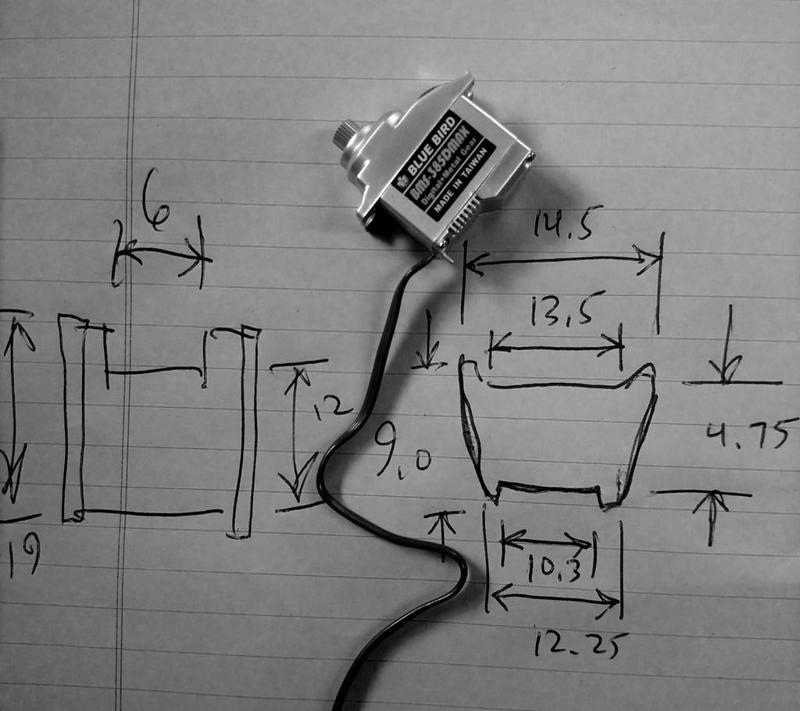 BLUE BIRD
BMS-385DMAX
Digital+Metal Gear
MADE IN TAIWAN
6
14.5
13.5
12
9.0
4.75
19
10.3
12.25